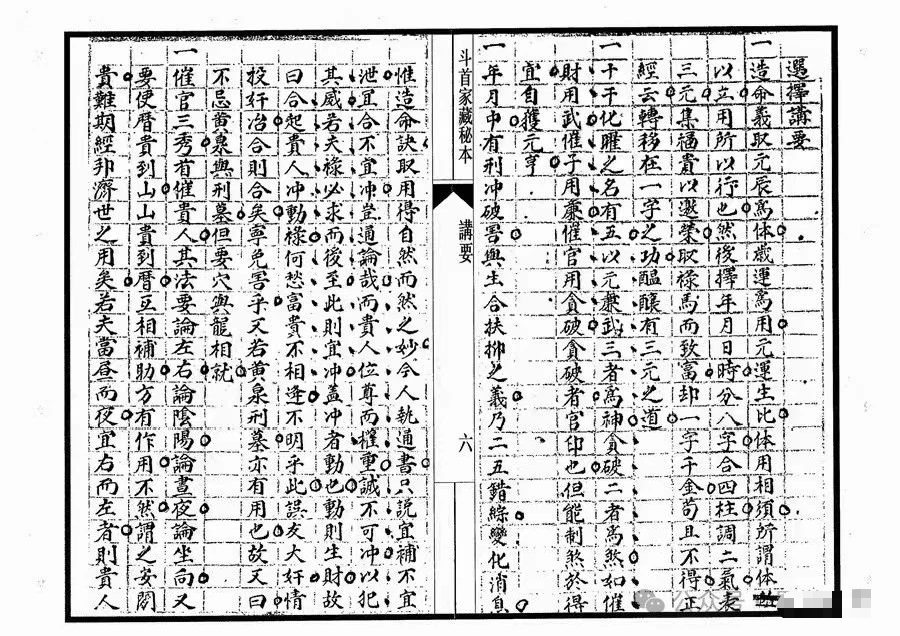 選擇講要
一造命義取元辰為体歲運為用元運生比体用相須所謂体
以立用所以行也然後擇年月日時分八字合四柱調二氣表
三元集福貴以選榮取祿馬而致富却一字千金苟且不得正
經云轉移在一字之功醞釀有三元之道
一十干化曜之名有五以元兼武三者為神貪破二者為煞如催
財用武催子用廉催官用貪破貪破者官印也但能制煞於得
宜自獲元亨
一年月中有刑冲破害與生合扶抑之義乃二五錯綜變化消息
斗首家藏秘本
講要
六
惟造命訣取用得自然而然之妙今人執通書只説宜補不宜
泄宜合不宜冲豈通論哉而貴人位尊而權重誠不可冲以犯
其威若夫祿必求而後至此則宜冲盖冲者動也動則生財故
曰合起貴人冲動祿何愁富貴不相逢不明乎此誤友大奸情
投奸冶合則合矣寧免害乎又若黄泉刑墓亦有用也故又曰
不忌黄泉與刑墓但要穴與龍相就
一催官三秀有催貴人其法要論左右論陰陽論晝夜論坐向又
要使曆貴到山山貴到曆互相補助方有作用不然謂之安閣
貴難期經邦濟世之用矣若夫當昼而夜宜右而左者則貴人
公众号